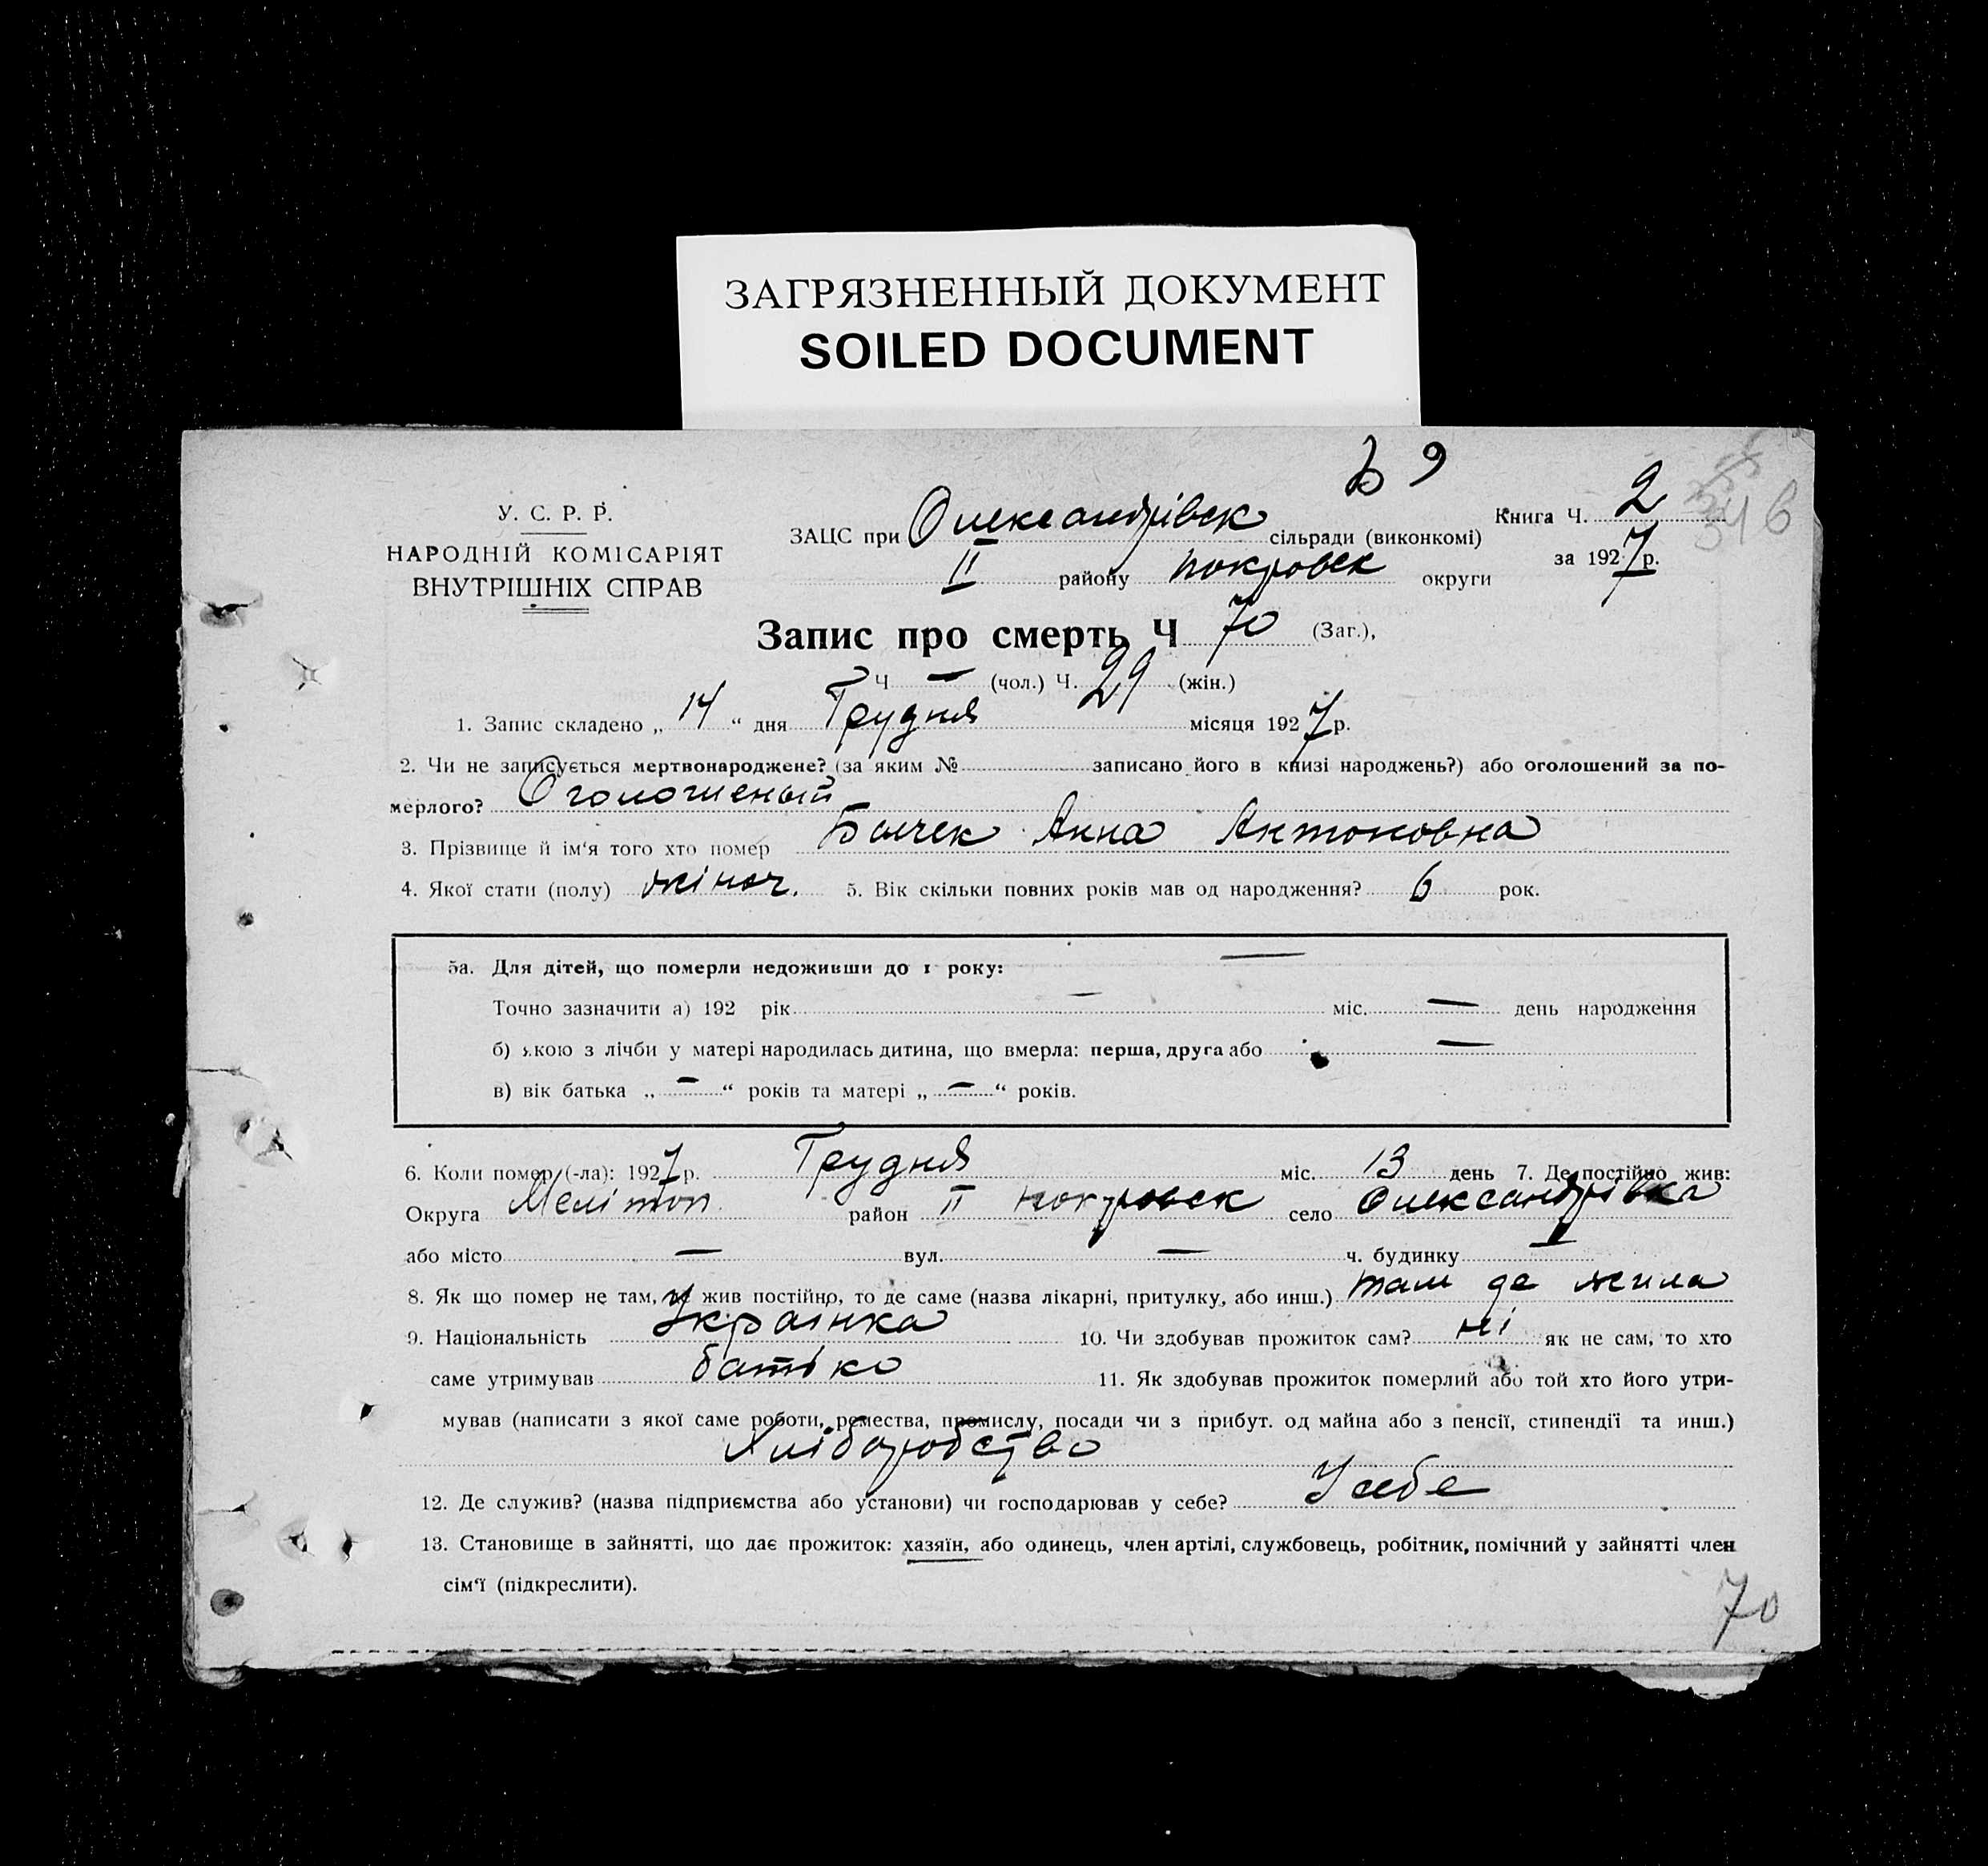 ЗАГРЯЗНЕННЫЙ ДОКУМЕНТ
SOILED DOCUMENT
У. С. Р. Р.
НАРОДНІЙ КОМІСАРІЯТ
ВНУТРІШНІХ СПРАВ
ЗАЦС при Олександрівск сільради (виконкомі)
II району покровск округи
Книга Ч. 2
за 1927 р.
346
Запис про смерть Ч 70 (Заг.),
Ч — (чол.) Ч. 29 (жін.)
1. Запис складено „ 14 “ дня Грудня місяця 1927 р.
2. Чи не записується мертвонароджене? (за яким № записано його в книзі народжень?) або оголошений за по-
мерлого? Оголошеный
3. Прізвище й ім‘я того хто помер Балчек Анна Антоновна
4. Якої стати (полу) жіноч. 5. Вік скільки повних років мав од народження? 6 рок.
5а. Для дітей, що померли недоживши до 1 року: —
Точно зазначити а) 192 рік — міс. — день народження
б) якою з лічби у матері народилась дитина, що вмерла: перша, друга або —
в) вік батька „ — “ років та матері „ — “ років.
6. Коли помер (-ла): 1927 р. Грудня міс. 13 день 7. Де постійно жив:
Округа Мелітоп. район II покровск село Олександрівка
або місто — вул. — ч. будинку —
8. Як що помер не там, де жив постійно, то де саме (назва лікарні, притулку, або инш.) там де жила
9. Національність Українка 10. Чи здобував прожиток сам? ні як не сам, то хто
саме утримував батько 11. Як здобував прожиток померлий або той хто його утри-
мував (написати з якої саме роботи, ремества, промислу, посади чи з прибут. од майна або з пенсії, стипендії та инш.)
Хліборобство
12. Де служив? (назва підприємства або установи) чи господарював у себе? У себе
13. Становище в зайнятті, що дає прожиток: хазяїн, або одинець, член артілі, службовець, робітник, помічний у зайнятті член
сім‘ї (підкреслити).
70